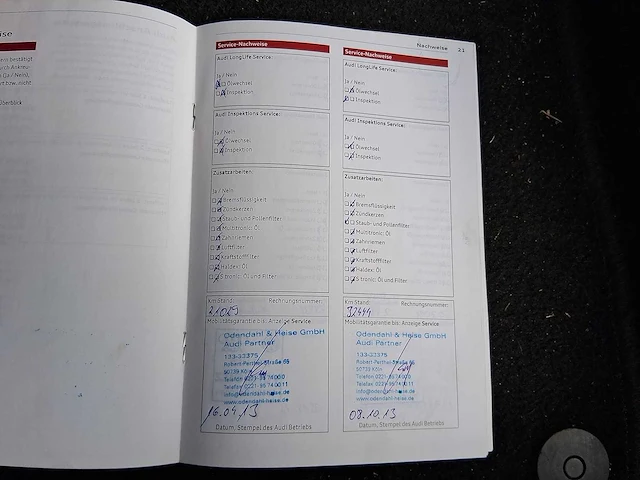 Nachweise 21
Service-Nachweise
Audi LongLife Service:
Ja / Nein
Ölwechsel
Inspektion
Audi Inspektions Service:
Ja / Nein
Ölwechsel
Inspektion
Zusatzarbeiten:
Ja / Nein
Bremsflüssigkeit
Zündkerzen
Staub- und Pollenfilter
Multitronic: Öl
Zahnriemen
Luftfilter
Kraftstofffilter
Haldex: Öl
S tronic: Öl und Filter
Km Stand: Rechnungsnummer:
21029
Mobilitätsgarantie bis: Anzeige Service
Odendahl & Heise GmbH
Audi Partner
133-33375
Robert-Perthel-Straße 65
50739 Köln
Telefon 0221-95 74 000
Telefax 0221-95 74 0011
info@odendahl-heise.de
www.odendahl-heise.de
16.04.13
Datum, Stempel des Audi Betriebs
Service-Nachweise
Audi LongLife Service:
Ja / Nein
Ölwechsel
Inspektion
Audi Inspektions Service:
Ja / Nein
Ölwechsel
Inspektion
Zusatzarbeiten:
Ja / Nein
Bremsflüssigkeit
Zündkerzen
Staub- und Pollenfilter
Multitronic: Öl
Zahnriemen
Luftfilter
Kraftstofffilter
Haldex: Öl
S tronic: Öl und Filter
Km Stand: Rechnungsnummer:
32494
Mobilitätsgarantie bis: Anzeige Service
Odendahl & Heise GmbH
Audi Partner
133-33375
Robert-Perthel-Straße 65
50739 Köln
Telefon 0221-95 74 000
Telefax 0221-95 74 0011
info@odendahl-heise.de
www.odendahl-heise.de
08.10.13
Datum, Stempel des Audi Betriebs